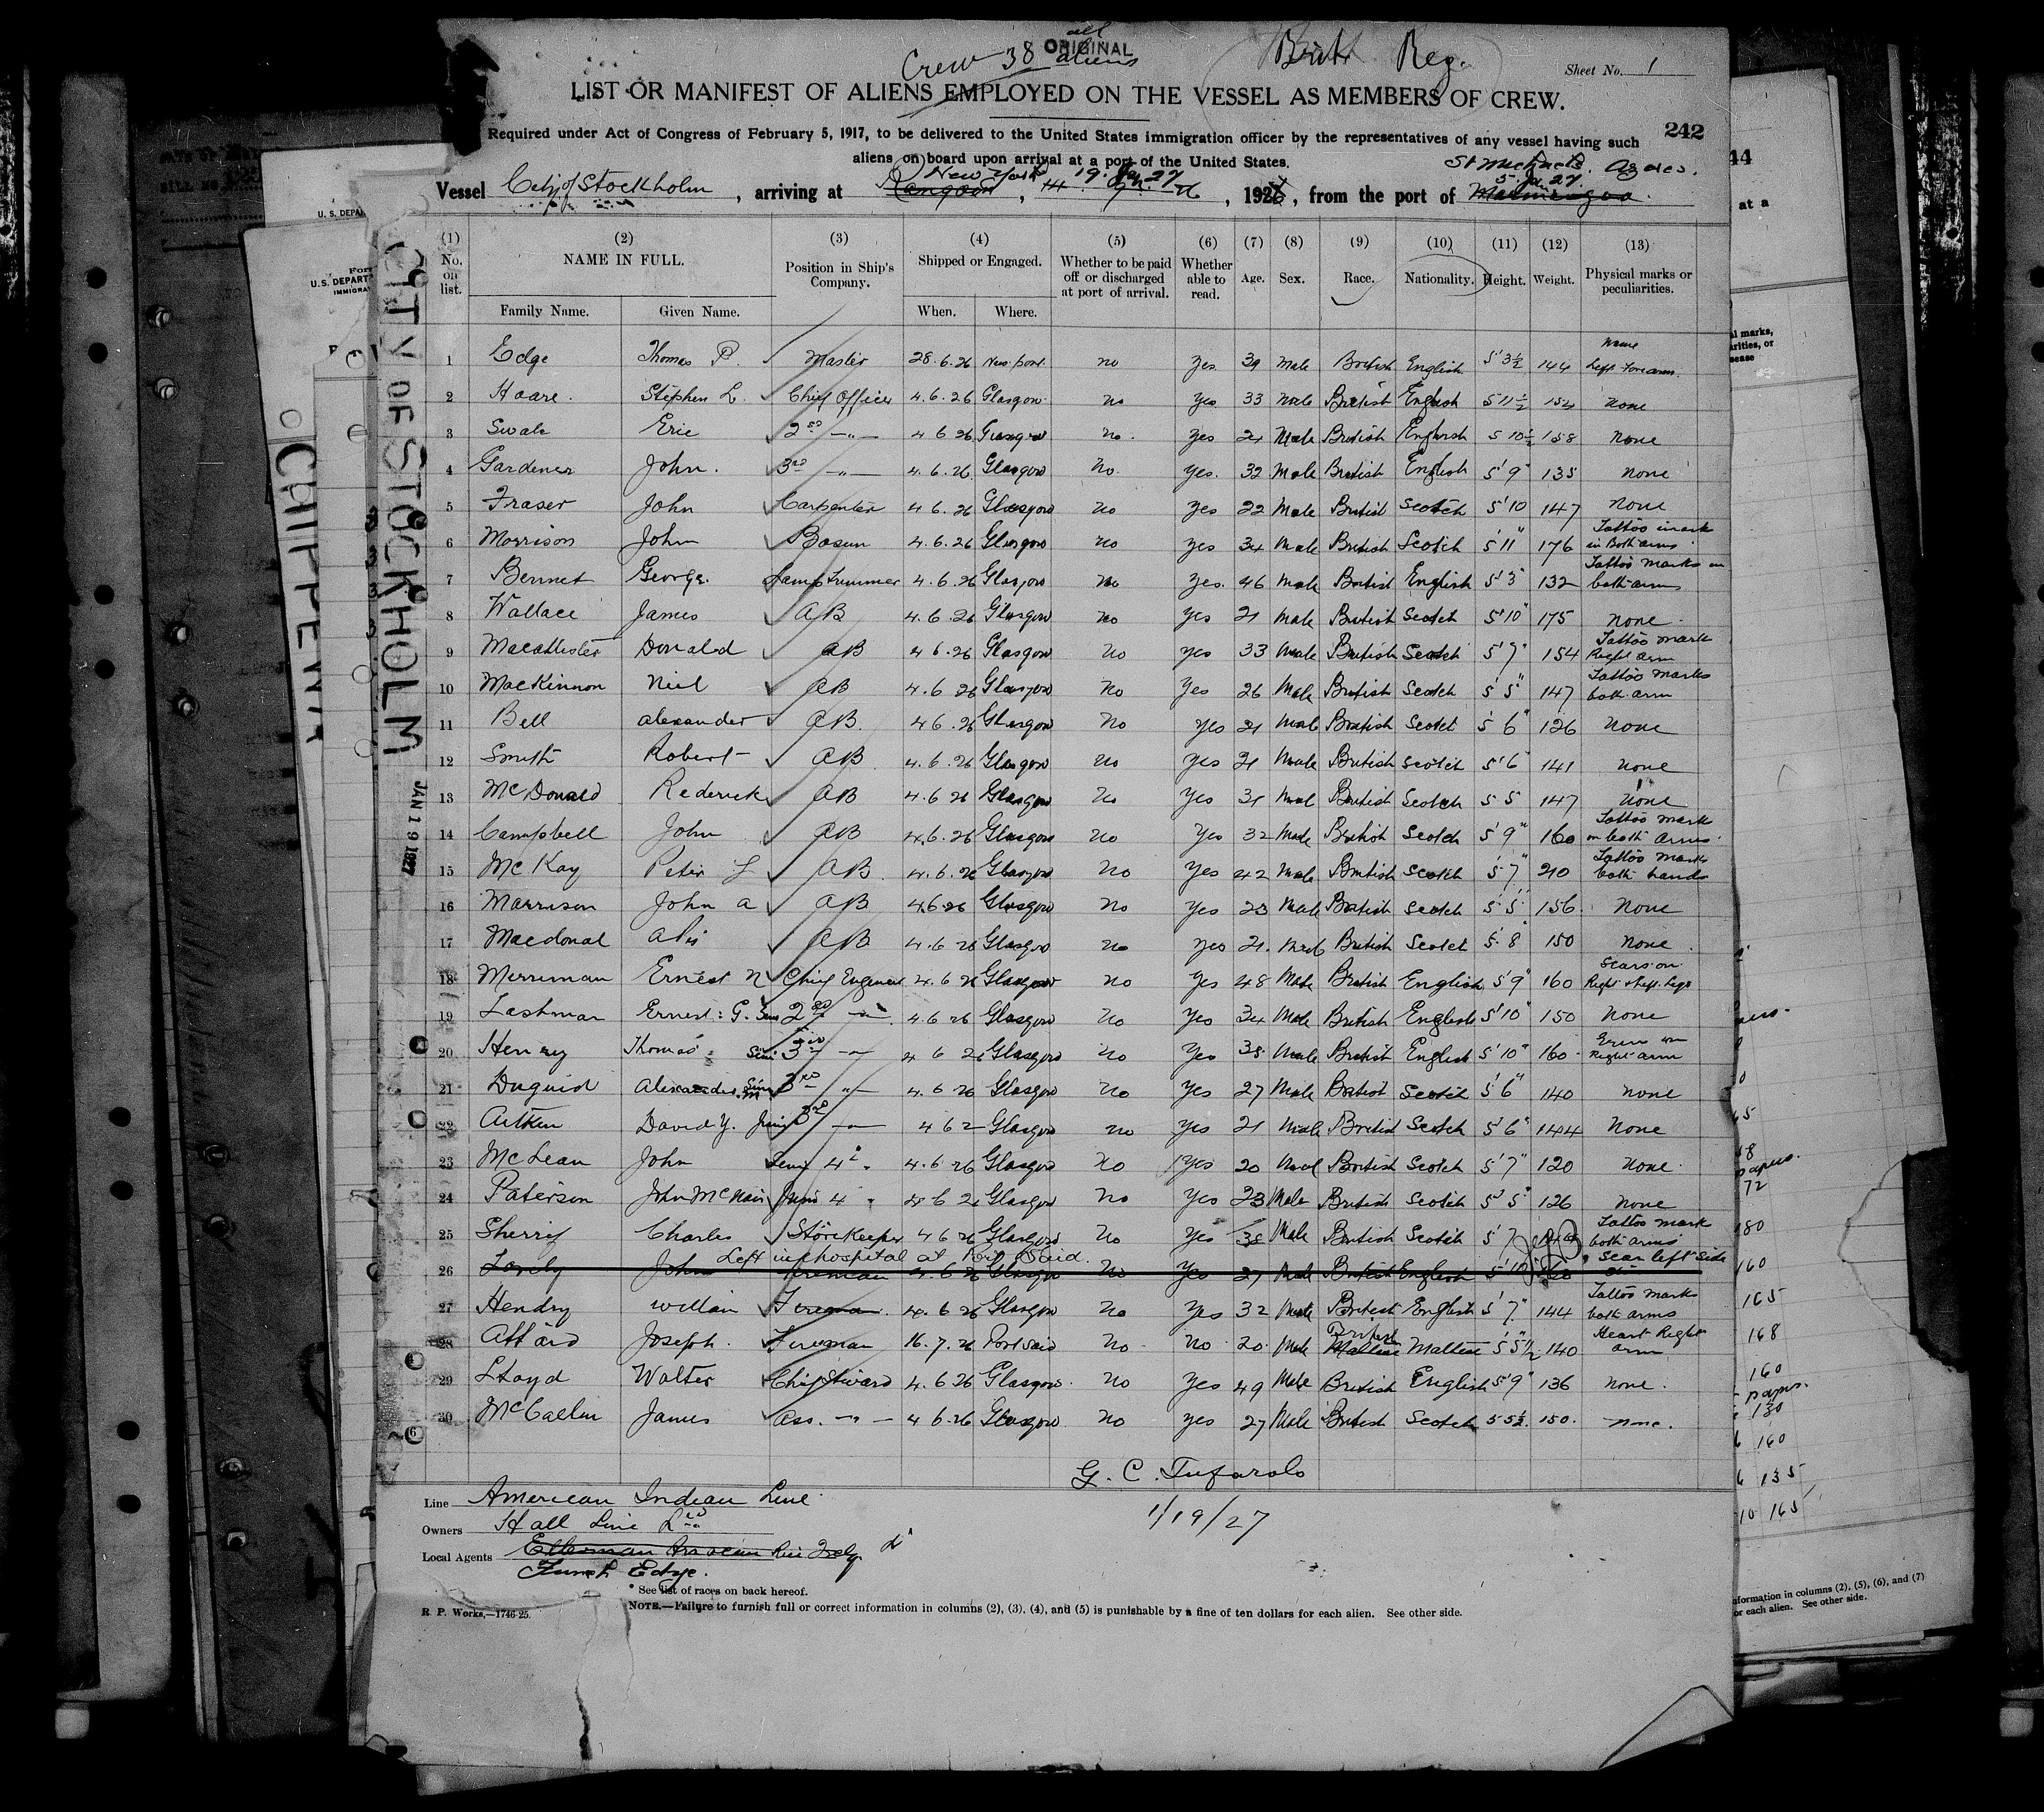 all
Crew 38 aliens
ORIGINAL
Brit Reg.
Sheet No. 1
LIST OR MANIFEST OF ALIENS EMPLOYED ON THE VESSEL AS MEMBERS OF CREW.
242
Required under Act of Congress of February 5, 1917, to be delivered to the United States immigration officer by the representatives of any vessel having such
aliens on board upon arrival at a port of the United States.
New York 19. Jan. 27 St Michaels Azores.
5 Jan 27.
Vessel City of Stockholm, arriving at Rangoon, 192, from the port of
(1) (2) (3) (4) (5) (6) (7) (8) (9) (10) (11) (12) (13)
No. on list. NAME IN FULL. Position in Ship's Company. Shipped or Engaged. Whether to be paid off or discharged at port of arrival. Whether able to read. Age. Sex. Race. Nationality. Height. Weight. Physical marks or peculiarities.
Family Name. Given Name. When. Where.
1 Edge Thomas P. Master 28.6.26 Newport no Yes 39 Male British English 5'3½ 144 Left Forearm.
2 Hoare. Stephen L. Chief Officer 4.6.26 Glasgow no Yes 33 Male British English 5 11½ 154 none
3 Swale Eric 2nd -"- 4 6 26 Glasgow no. Yes 24 Male British English 5 10½ 158 none
4 Gardener John. 3rd -"- 4.6.26 Glasgow No. Yes. 32 Male British English 5'9" 135 none
5 Fraser John Carpenter 4 6.26 Glasgow No Yes 22 Male British Scotch 5'10 147 None
6 Morrison John Bosun 4.6.26 Glasgow No Yes 34 Male British Scotch 5'11" 176 Tattoo mark in Both arms
7 Bennet George. Lamp Trimmer 4.6.26 Glasgow No Yes. 46 Male British English 5'3" 132 Tattoo Marks on both arms
8 Wallace James AB 4.6.26 Glasgow No Yes 21 Male British Scotch 5'10" 175 none
9 Macallister Donald AB 4 6.26 Glasgow No Yes 33 Male British Scotch 5'7" 154 Tattoo mark Right arm
10 MacKinnon Neil AB 4.6 26 Glasgow No Yes 26 Male British Scotch 5'5" 147 Tattoo Marks both arm
11 Bell Alexander AB. 4 6.26 Glasgow No Yes 21 Male British Scotch 5'6" 126 none
12 Smith Robert AB 4.6.26 Glasgow No Yes 21 Male British Scotch 5'6" 141 none
13 McDonald Rederick AB 4.6 26 Glasgow No Yes 31 Male British Scotch 5 5 147 none
14 Campbell John AB 4.6.26 Glasgow No Yes 32 Male British Scotch 5'9" 160 Tattoo mark on both arms
15 McKay Peter L AB. 4.6.26 Glasgow No Yes 42 Male British Scotch 5'7" 210 Tattoo Marks both hands
16 Morrison John A AB 4 6 26 Glasgow No Yes 23 Male British Scotch 5'5" 156 None
17 Macdonal AB 4.6 26 Glasgow no Yes 21. Male British Scotch 5'8" 150 none
18 Merriman Ernest N Chief Engineer 4.6 26 Glasgow no Yes 48 Male British English 5'9" 160 Scars on Right & Left Legs
19 Lashman Ernest G. Sen 2nd -"- 4.6 26 Glasgow No Yes 34 Male British English 5'10" 150 None
20 Henry Thomas Sen 3rd -"- 4 6 26 Glasgow No Yes 38 Male British English 5'10" 160 Right arm
21 Duguid Alexander M 3rd -"- 4.6 26 Glasgow No Yes 27 Male British Scotch 5'6" 140 none
22 Aitken David Y. Jun 3rd -"- 4 6 2 Glasgow no Yes 21 Male British Scotch 5'6" 144 None
23 McLean John Sen 4th " 4.6 26 Glasgow No Yes 20 Male British Scotch 5'7" 120 none
24 Paterson John McNair Jun 4 " 4 6 26 Glasgow No Yes 23 Male British Scotch 5'5" 126 none
25 Sherrif Charles Storekeeper 4 6 26 Glasgow No Yes 38 Male British Scotch 5'7 Tattoo mark both arms
Left in hospital at Port Said.
26 Lovely John Fireman 4.6 26 Glasgow No Yes 27 Male British English 5'10 Scar left side
27 Hendry William Fireman. 4.6 26 Glasgow No Yes 32 Male British English 5'7" 144 Tattoo Marks both arms
28 Attard Joseph. Fireman 16.7.26 Port Said No No 20. Male British Maltese Maltese 5'5½ 140 Heart Right arm
29 Lloyd Walter Chief Steward 4.6 26 Glasgow. No Yes 49 Male British English 5'9" 136 none.
30 McCallum James Ass. -"- 4 6.26 Glasgow No Yes 27 Male British Scotch 5 5½ 150. none.
G. C. Tufarolo
1/19/27
Line American Indian Line
Owners Hall Line Ld
Local Agents
Funch Edye.
* See list of races on back hereof.
R. P. Works,—1746-25.
NOTE.—Failure to furnish full or correct information in columns (2), (3), (4), and (5) is punishable by a fine of ten dollars for each alien. See other side.
CITY OF STOCKHOLM
JAN 19 1927
CHIPPENHAM
U. S. DEPAR
U. S. DEPART
IMMIGRA
44
at a
al marks,
arities, or
sease
48
papers.
72
180
160
165
168
160
papers.
130
160
135
10 165
nformation in columns (2), (5), (6), and (7)
or each alien. See other side.